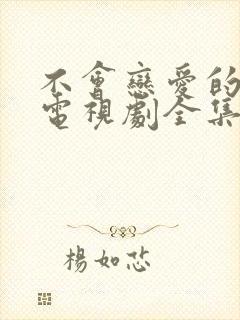 不會戀愛的
電視劇全集
楊如芯